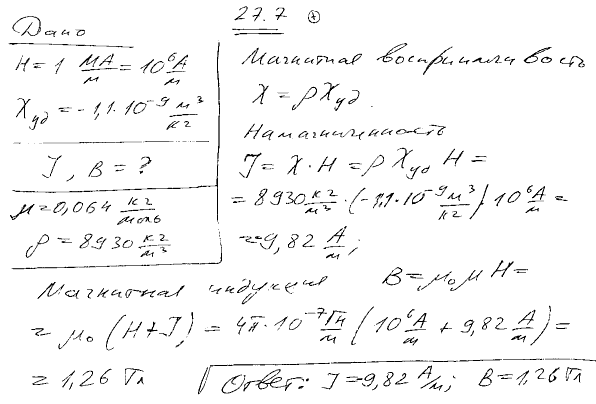 27.7 ⊛
Дано
H = 1 МА/м = 10⁶ А/м
χуд = -1,1·10⁻⁹ м³/кг
J, B = ?
μ = 0,064 кг/моль
ρ = 8930 кг/м³
Магнитная восприимчивость
χ = ρχуд.
Намагниченность
J = χ·H = ρ χуд H =
= 8930 кг/м³ · (-1,1·10⁻⁹ м³/кг) 10⁶ А/м =
= -9,82 А/м;
Магнитная индукция B = μ₀μH =
= μ₀ (H+J) = 4π·10⁻⁷ Гн/м (10⁶ А/м + 9,82 А/м) =
= 1,26 Тл
Ответ: J = 9,82 А/м; B = 1,26 Тл